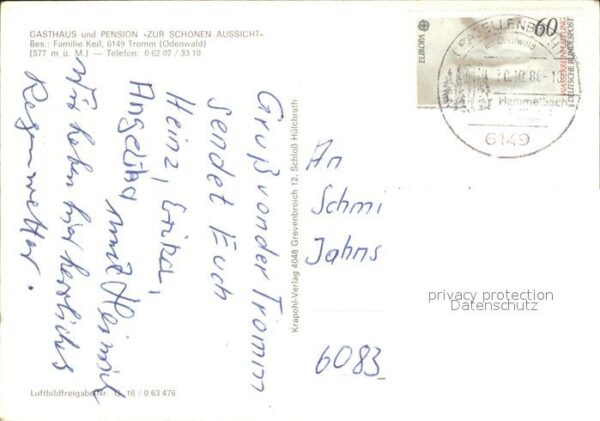 GASTHAUS und PENSION »ZUR SCHÖNEN AUSSICHT«
Bes.: Familie Keil, 6149 Tromm (Odenwald)
(577 m ü. M.) — Telefon: 0 62 07 / 33 10
Gruß von der Tromm
sendet Euch
Heinz, Erika,
Angelika und
Wir haben hier herrliches
Regenwetter.
Luftbildfreigabe Nr. 16 / 0 63 476
Krapohl-Verlag 4048 Grevenbroich 12, Schloß Hülchrath
EUROPA
60
DEUTSCHE BUNDESPOST
Hammelbach
6149
An
Schmi
Jahns
6083
privacy protection
Datenschutz